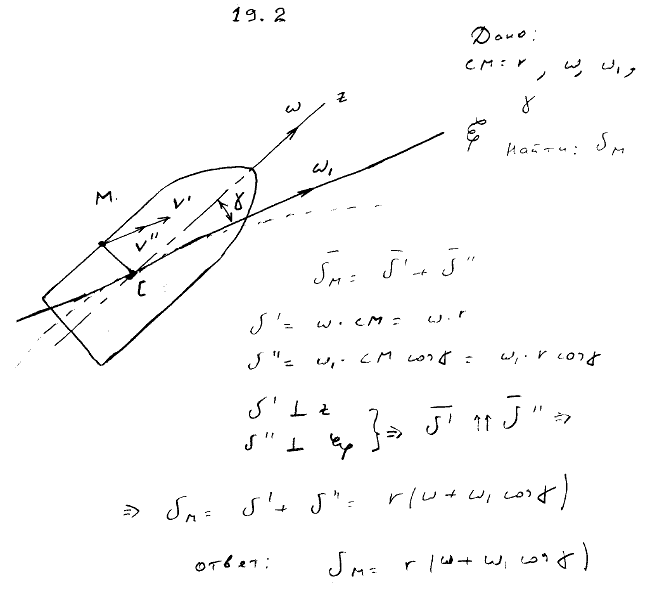 19.2
Дано:
CM = r, ω, ω₁,
γ
Найти: υ_M
ω z
ξ
ω₁
M.
v'
γ
v''
C
ῡ_M = ῡ' + ῡ''
υ' = ω · CM = ω · r
υ'' = ω₁ · CM cos γ = ω₁ · r cos γ
υ' ⊥ z
υ'' ⊥ ξ } ⇒ ῡ' ↑↑ ῡ'' ⇒
⇒ υ_M = υ' + υ'' = r(ω + ω₁ cos γ)
ответ: υ_M = r(ω + ω₁ cos γ)